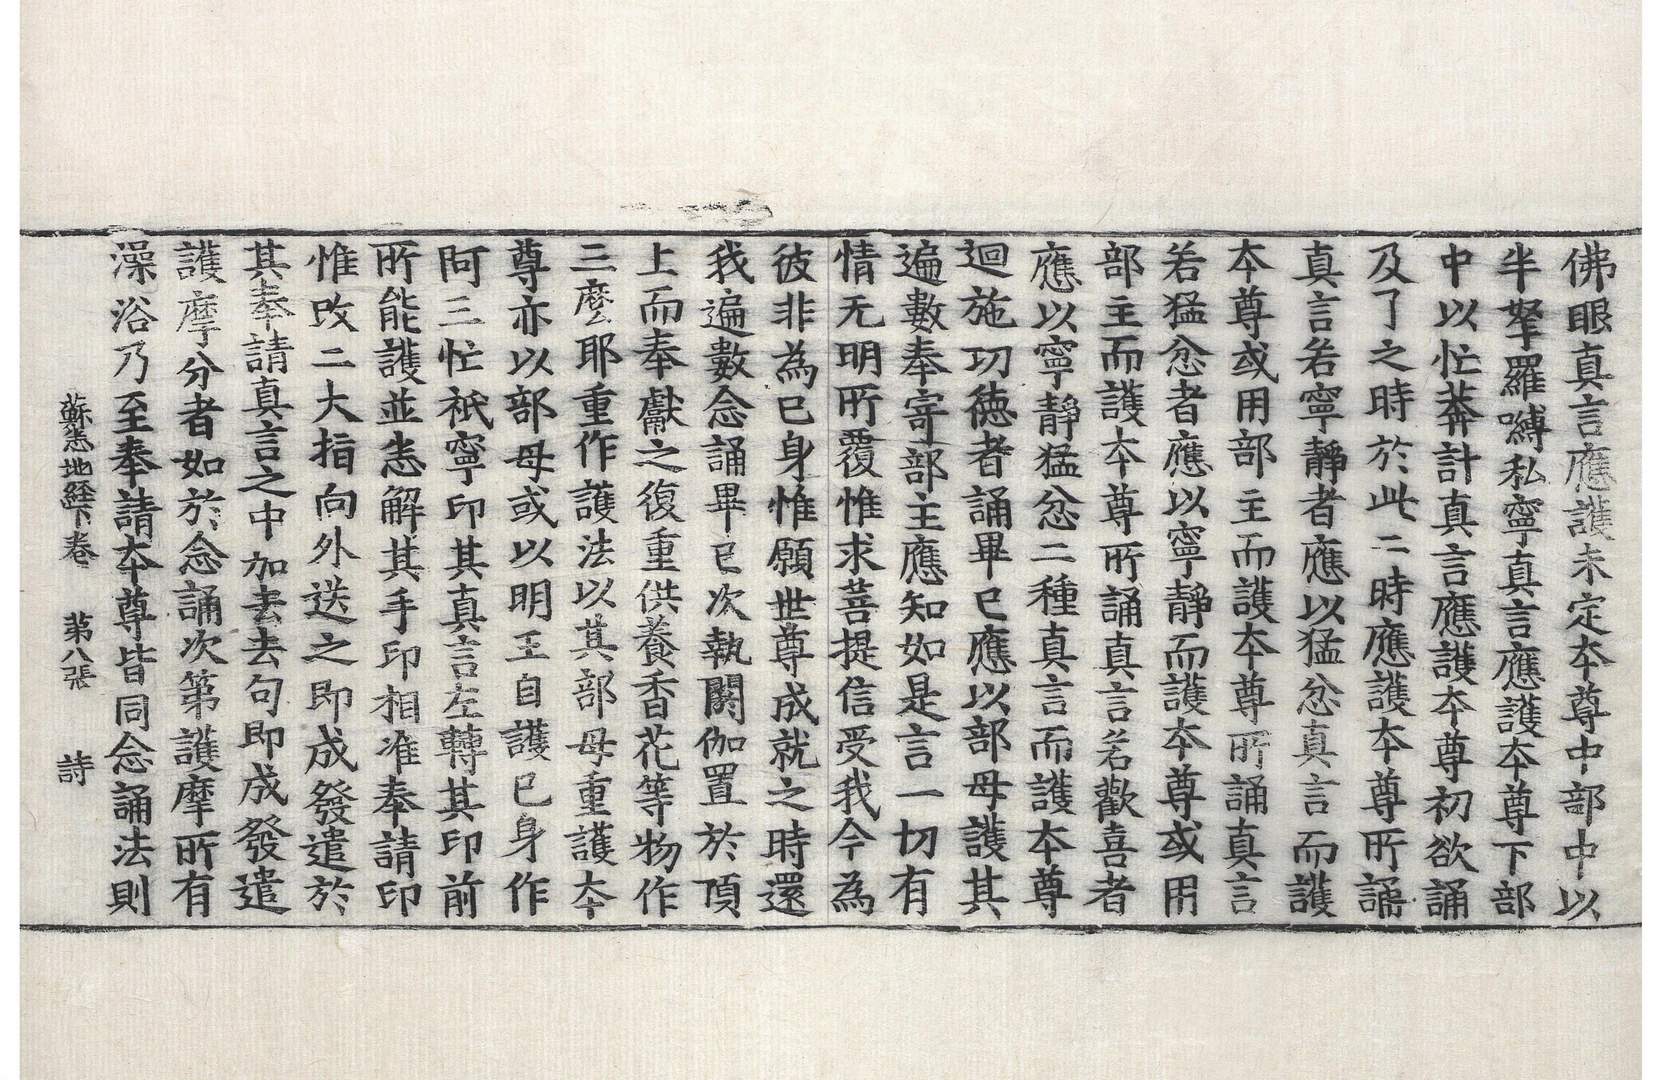 佛眼真言應護未定夲尊中部中以
半拏羅嚩私寧真言應護夲尊下部
中以忙莾計真言應護夲尊初欲誦
及了之時於此二時應護夲尊所誦
真言若寧靜者應以猛忿真言而護
夲尊或用部主而護夲尊所誦真言
若猛忿者應以寧靜而護夲尊或用
部主而護夲尊所誦真言若歡喜者
應以寧靜猛忿二種真言而護夲尊
迴施功德者誦畢已應以部母護其
遍數奉寄部主應知如是言一切有
情无明所覆惟求菩提信受我今為
彼非為已身惟願世尊成就之時還
我遍數念誦畢已次執閼伽置於頂
上而奉獻之復重供養香花等物作
三麼耶重作護法以其部母重護夲
尊亦以部母或以明王自護已身作
阿三忙祇寧印其真言左轉其印前
所能護並悉解其手印相准奉請印
惟改二大指向外送之即成發遣於
其奉請真言之中加去去句即成發遣
護摩分者如於念誦次第護摩所有
澡浴乃至奉請夲尊皆同念誦法則
蘇悉地經下卷 第八張 詩